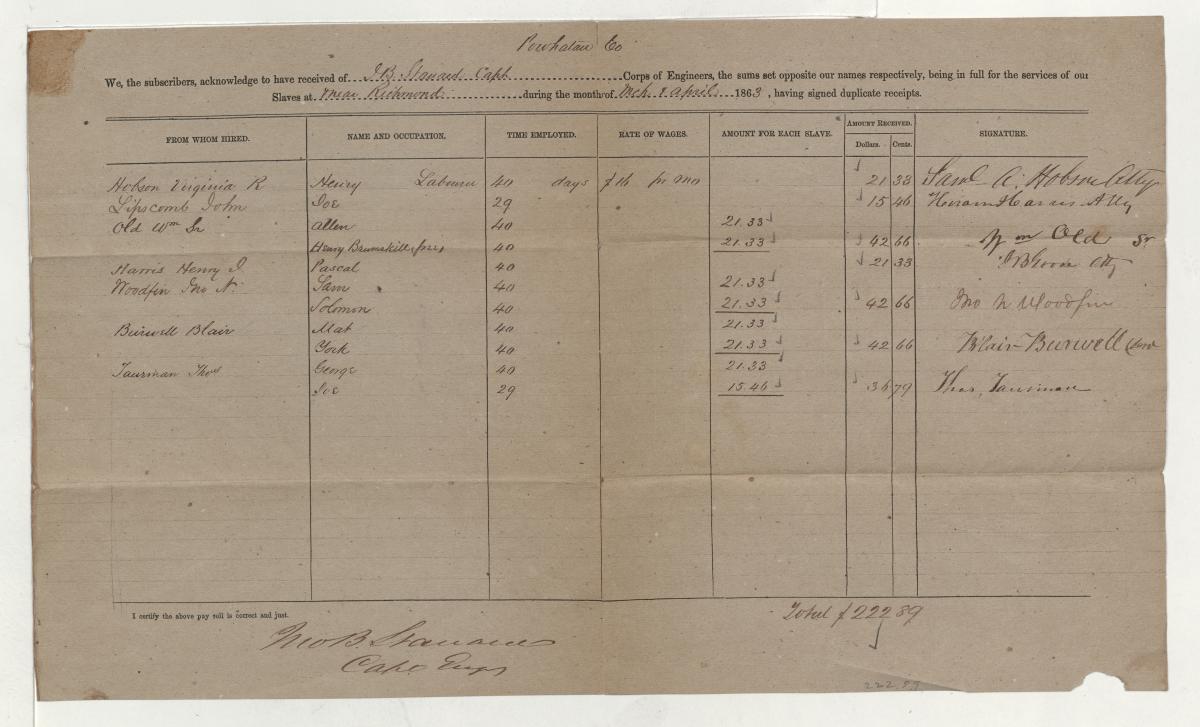 Powhatan Co
We, the subscribers, acknowledge to have received of J B. Stanard Capt Corps of Engineers, the sums set opposite our names respectively, being in full for the services of our
Slaves at near Richmond during the month of Mch & April 1863, having signed duplicate receipts.
FROM WHOM HIRED. NAME AND OCCUPATION. TIME EMPLOYED. RATE OF WAGES. AMOUNT FOR EACH SLAVE. AMOUNT RECEIVED. Dollars. Cents. SIGNATURE.
Hobson Virginia R Henry Labourer 40 days $16 pr mo 21 33 Saml A. Hobson Atty
Lipscomb John Joe 29 15 46 Hiram Harris Atty
Old Wm Sr Allen 40 21.33
Henry Brumskill 40 21.33 42 66 Wm Old Sr
Harris Henry J Pascal 40 21 33 Atty
Woodfin Jno N. Sam 40 21.33
Solomon 40 21.33 42 66 Jno N Woodfin
Burwell Blair Mat 40 21.33
York 40 21.33 42 66 Blair Burwell
Taurman Thos George 40 21.33
Joe 29 15.46 36 79 Thos. Taurman
I certify the above pay roll is correct and just.
Total $222 89
Jno B. Stanard
Capt Engrs
222.89